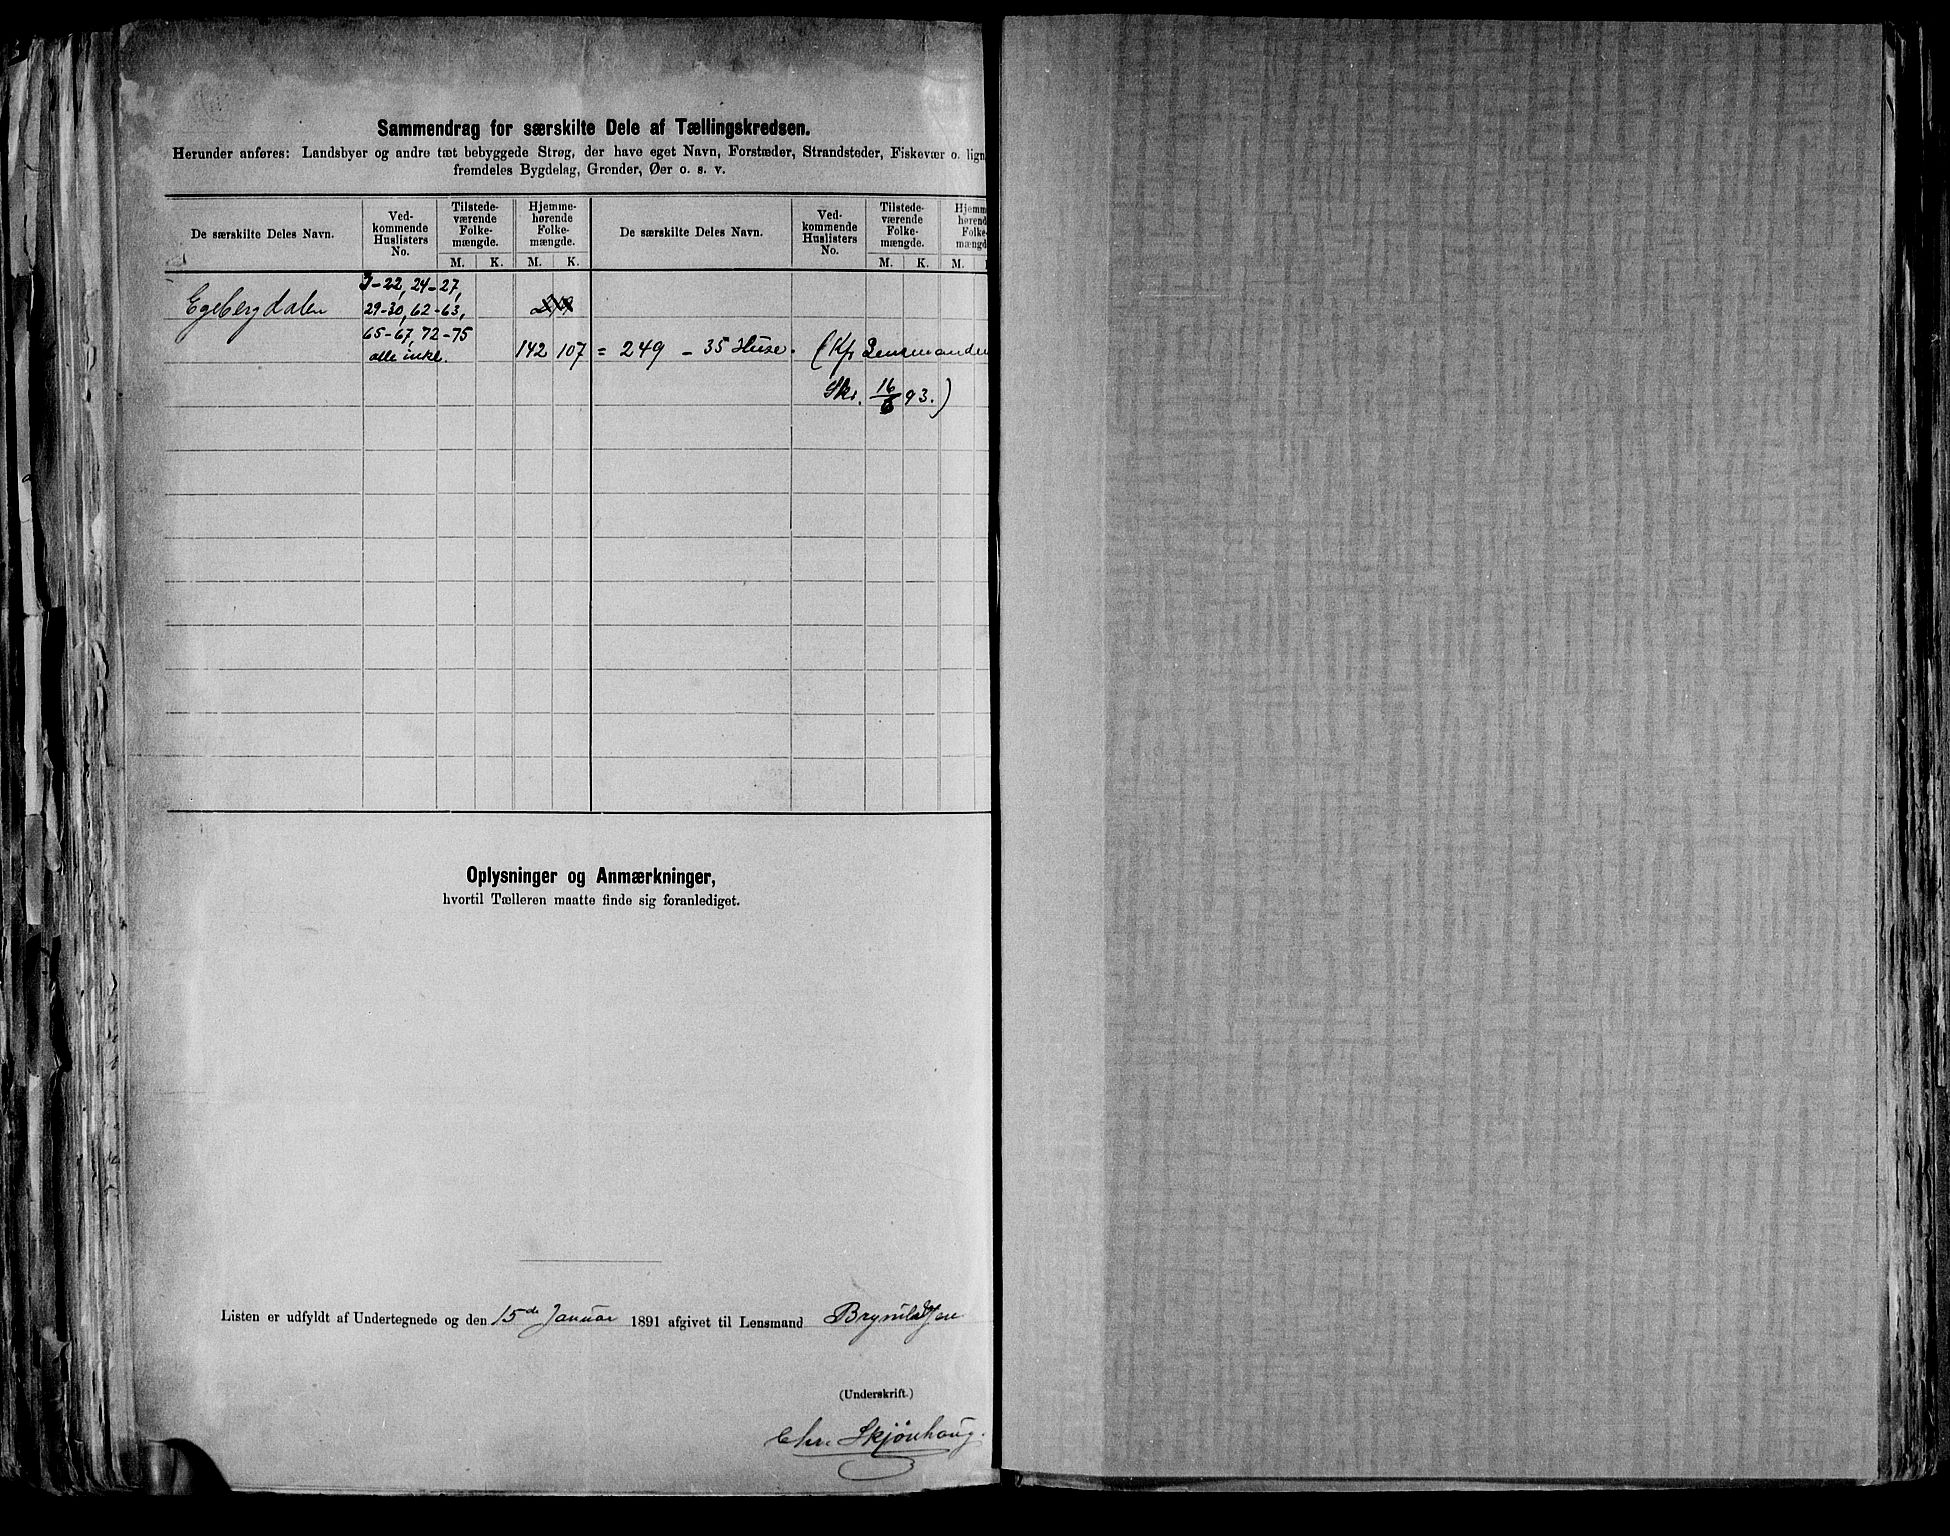 Sammendrag for særskilte Dele af Tællingskredsen.
Herunder anføres: Landsbyer og andre tæt bebyggede Strøg, der have eget Navn, Forstæder, Strandsteder, Fiskevær o. lign
fremdeles Bygdelag, Grender, Øer o. s. v.
De særskilte Deles Navn.
Ved-
kommende
Huslisters
No.
Tilstede-
værende
Folke-
mængde.
Hjemme-
hørende
Folke-
mængde.
De særskilte Deles Navn.
Ved-
kommende
Huslisters
No.
Tilstede-
værende
Folke-
mængde.
Hjemm
hørend
Folke-
mængd
M. K. M. K. M. K. M.
3-22, 24-27,
Egebergdalen 29-30, 62-63,
65-67, 72-75
alle inkl. 142 107 = 249 - 35 Huse. (Kfr Lensmanden
Skr. 16/6 93.)
Oplysninger og Anmærkninger,
hvortil Tælleren maatte finde sig foranlediget.
Listen er udfyldt af Undertegnede og den 15de Januar 1891 afgivet til Lensmand Brynildsen
(Underskrift.)
Chr. Skjønhaug.